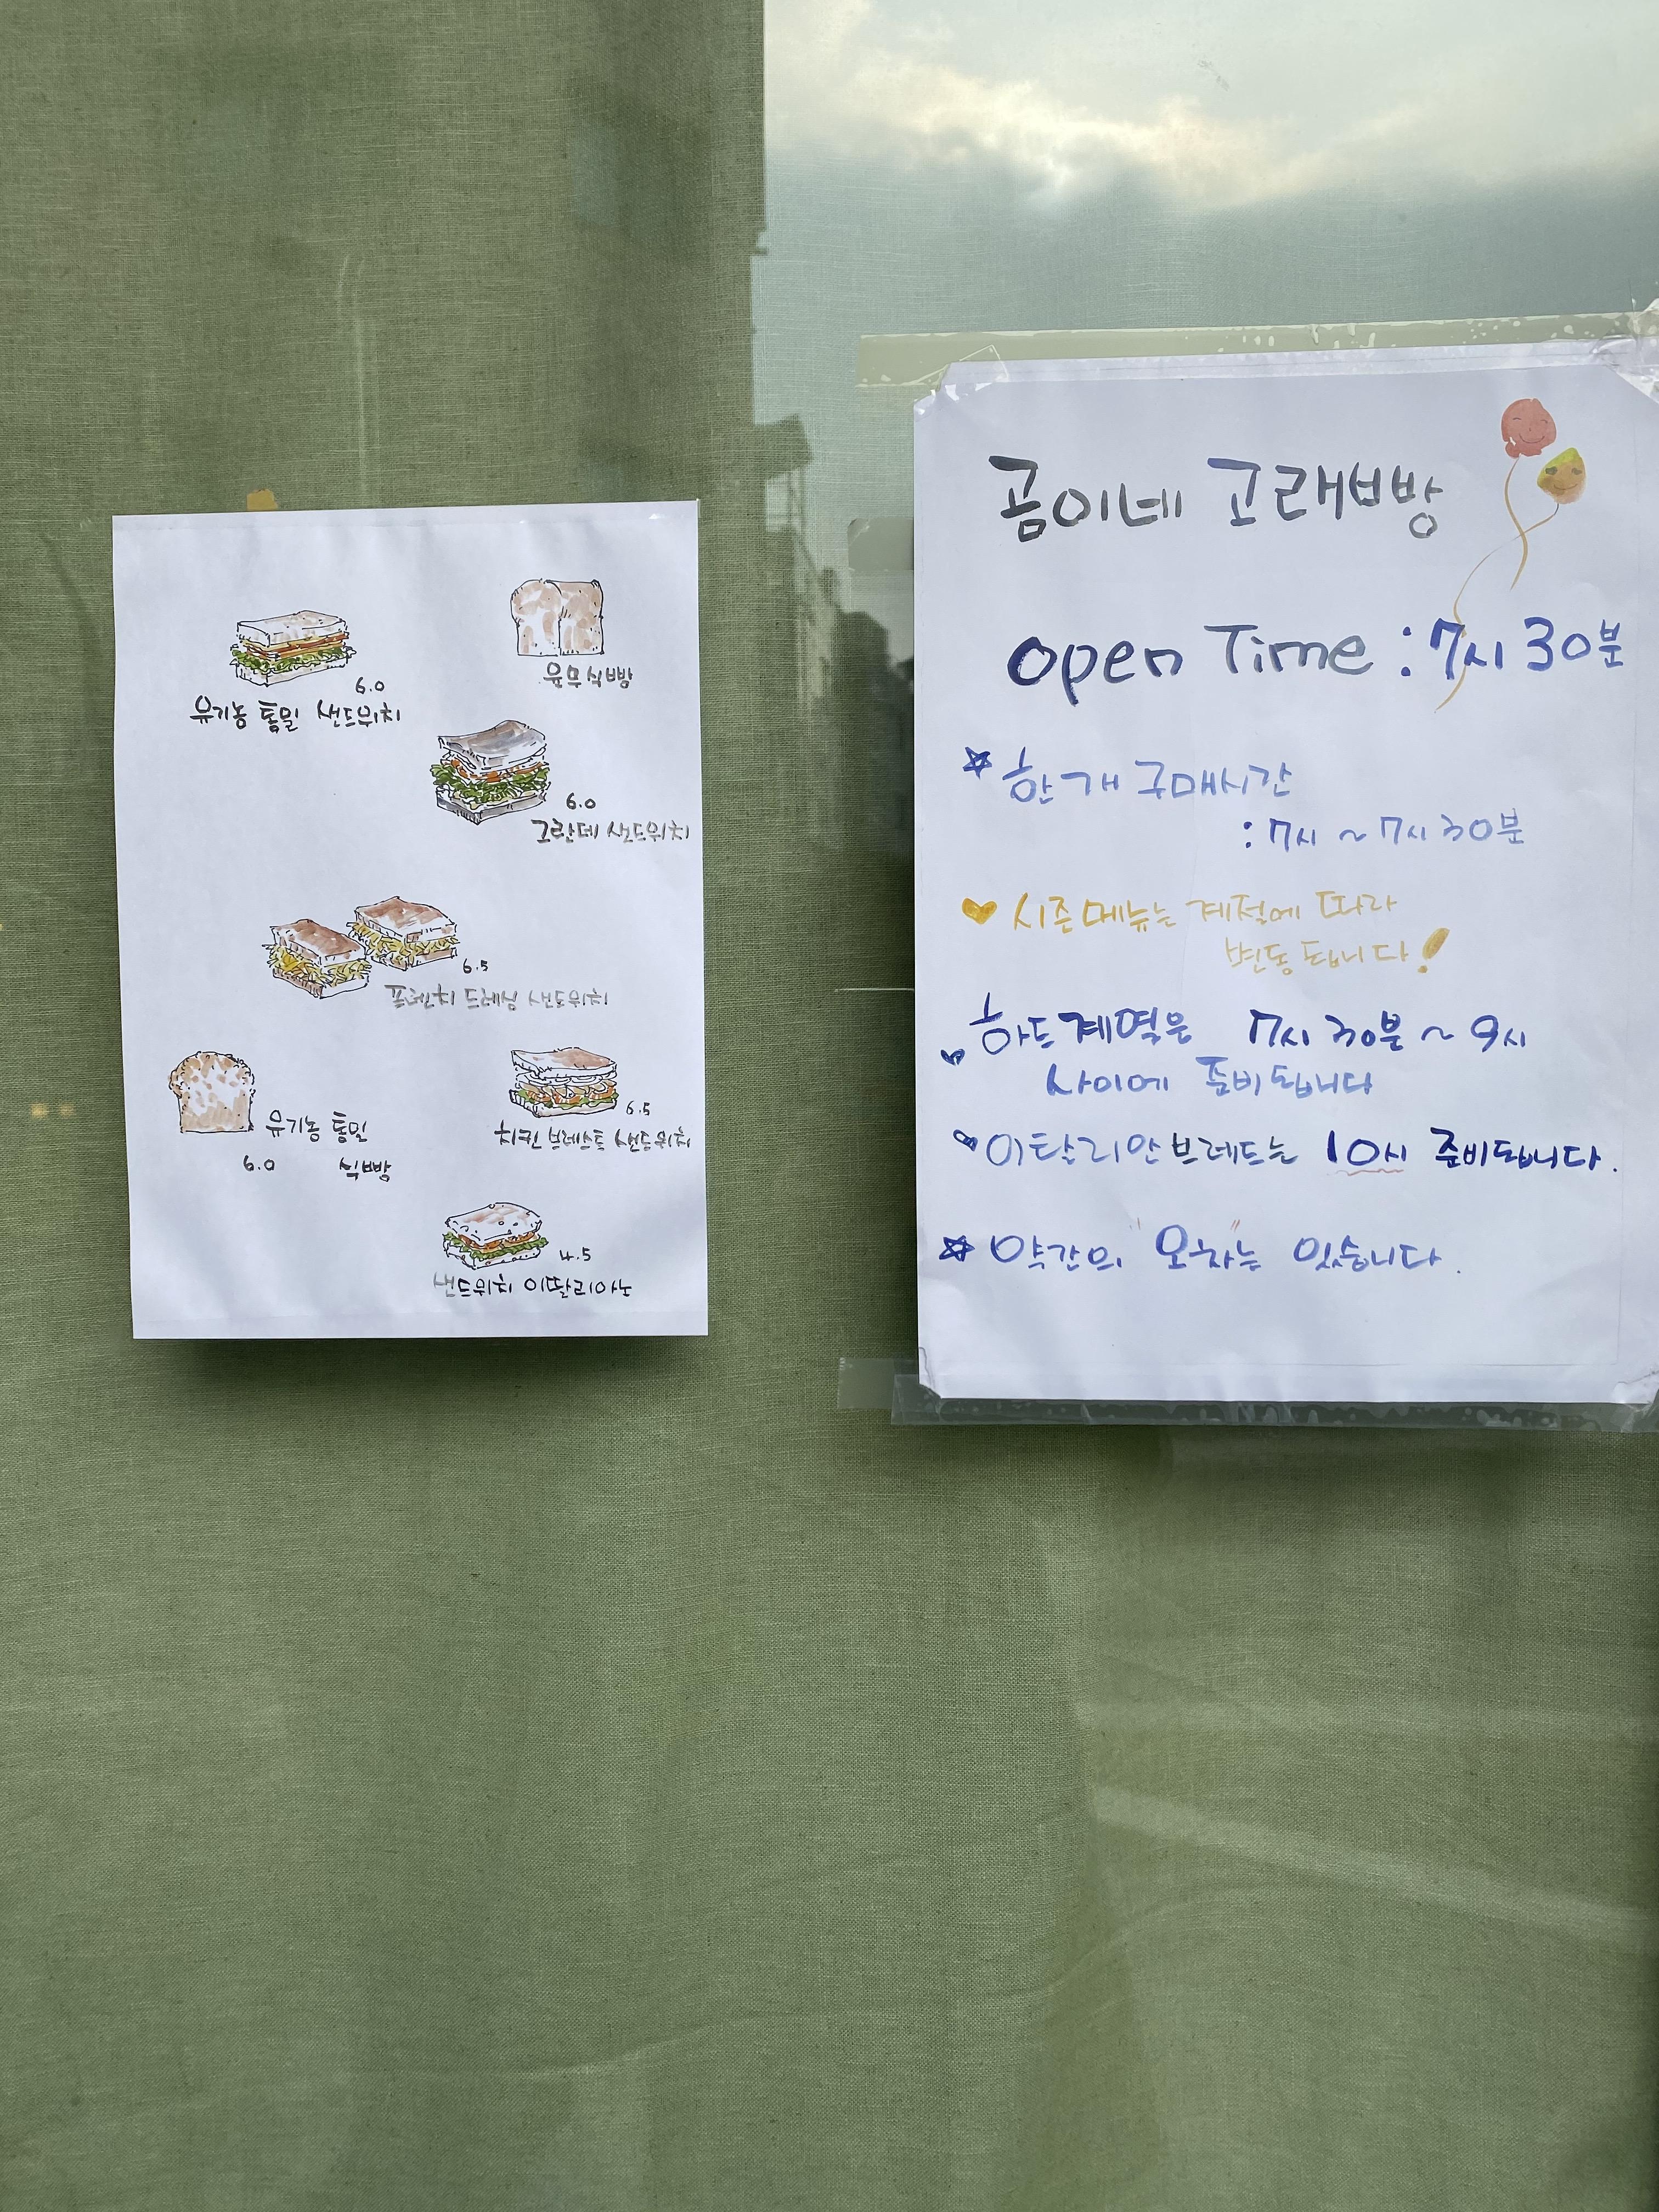 6.0
유기농 통밀 샌드위치
윤무식빵
6.0
그란데 샌드위치
6.5
프렌치 드레싱 샌드위치
유기농 통밀
6.0 식빵
6.5
치킨 브레스트 샌드위치
4.5
샌드위치 이딸리아노
곰이네 고래빵
open Time : 7시 30분
한개 구매시간
: 7시 ~ 7시 30분
시즌메뉴는 계절에 따라
변동됩니다!
하드계열은 7시 30분 ~ 9시
사이에 준비됩니다
이탈리안브레드는 10시 준비됩니다.
약간의 "오차"는 있습니다.